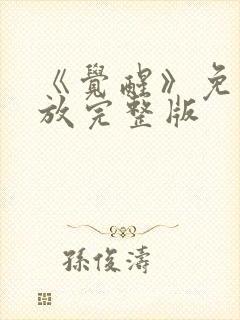 《覺醒》免
放完整版
孫俊濤